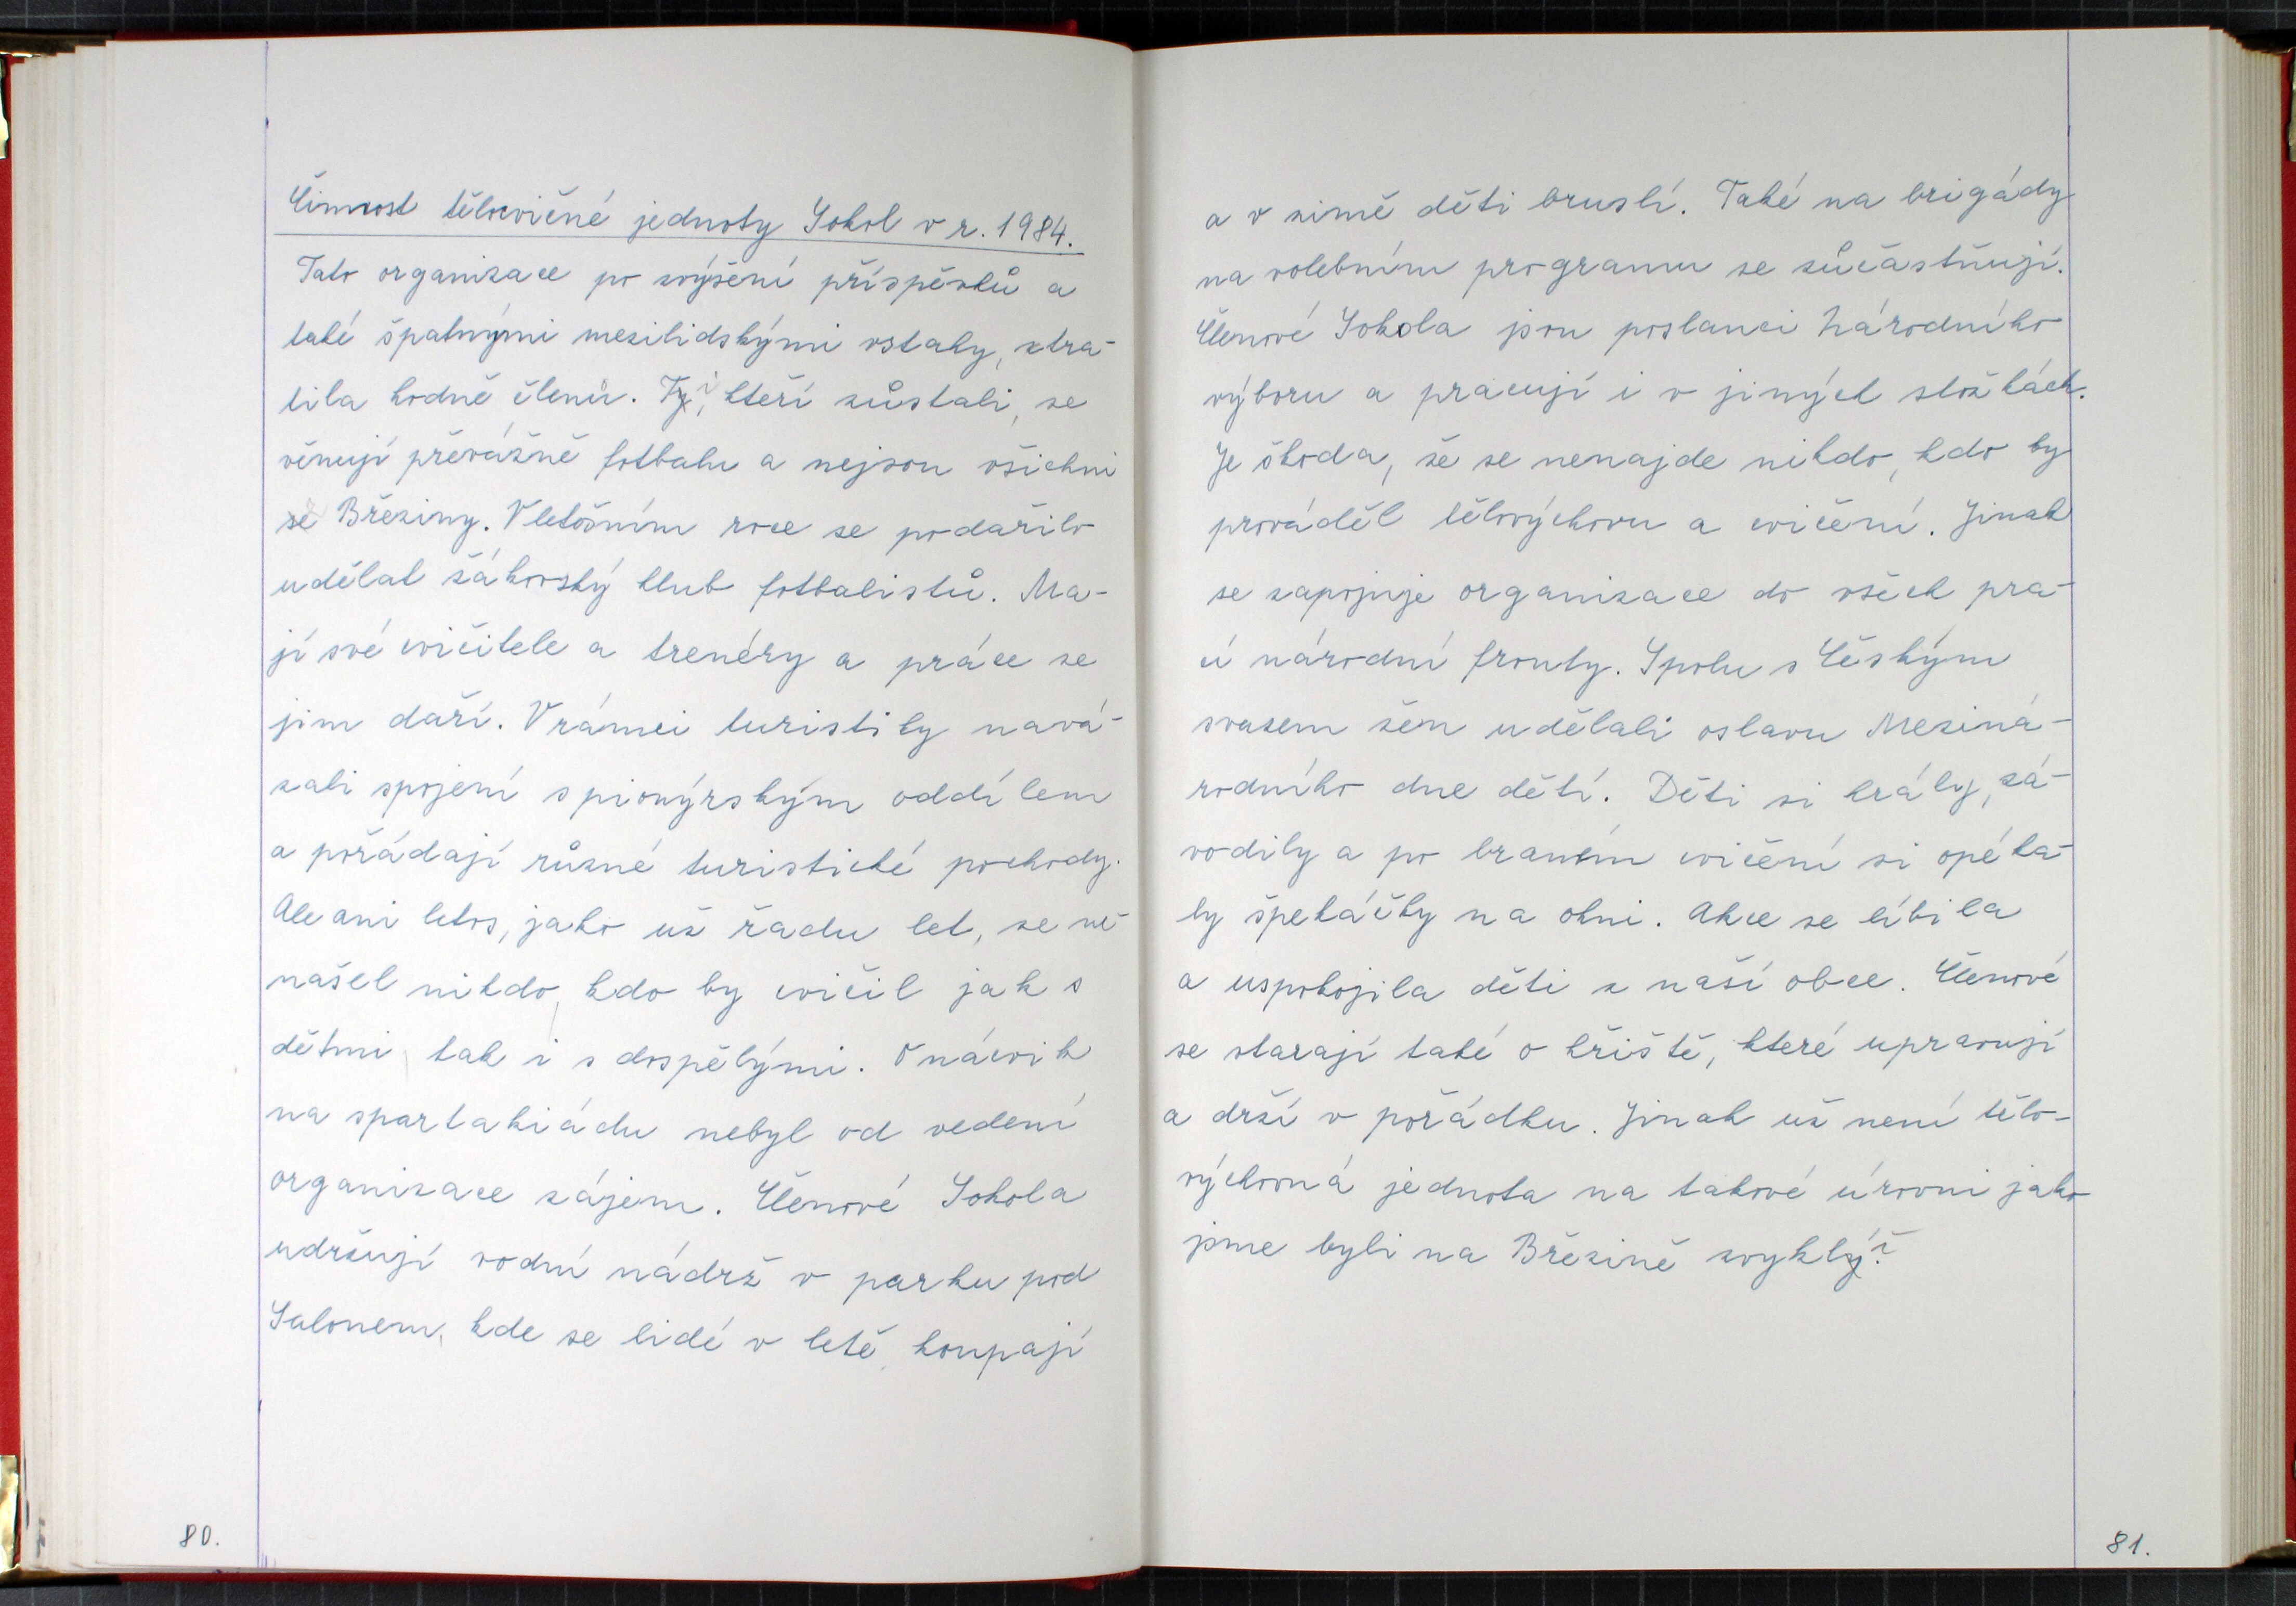 Činnost tělocvičné jednoty Sokol v r. 1984.
Tato organizace po zvýšení příspěvků a
také špatnými mezilidskými vztahy, ztra-
tila hodně členů. Ti, kteří zůstali, se
věnují převážně fotbalu a nejsou všichni
z Březiny. V letošním roce se podařilo
udělat žákovský klub fotbalistů. Ma-
jí své cvičitele a trenéry a práce se
jim daří. V rámci turistiky navá-
zali spojení s pionýrským oddílem
a pořádají různé turistické pochody.
Ale ani letos, jako už řadu let, se ne-
našel nikdo, kdo by cvičil jak s
dětmi, tak i s dospělými. O nácvik
na spartakiádu nebyl od vedení
organizace zájem. Členové Sokola
udržují vodní nádrž v parku pod
Salonem, kde se lidé v letě koupají
80.
a v zimě děti bruslí. Také na brigády
na volebním programu se zůčastňují.
Členové Sokola jsou poslanci Národního
výboru a pracují i v jiných složkách.
Je škoda, že se nenajde nikdo, kdo by
prováděl tělovýchovu a cvičení. Jinak
se zapojuje organizace do všech pra-
cí národní fronty. Spolu s Českým
svazem žen udělali oslavu Meziná-
rodního dne dětí. Děti si hrály, zá-
vodily a po braném cvičení si opéka-
ly špekáčky na ohni. Akce se líbila
a uspokojila děti z naší obce. Členové
se starají také o hřiště, které upravují
a drží v pořádku. Jinak už není tělo-
výchovná jednota na takové úrovni jako
jsme byli na Březině zvyklí.
81.